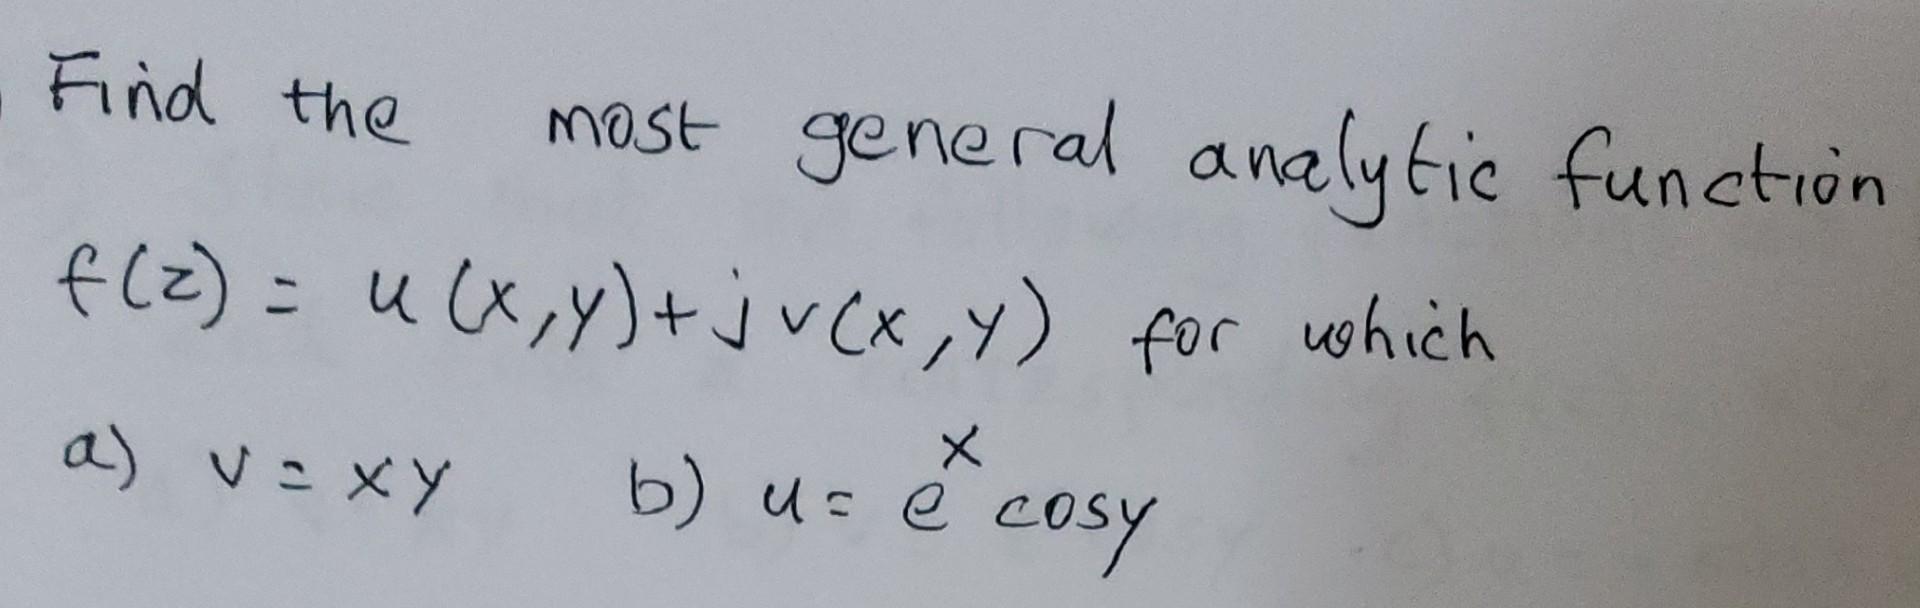 Find the most general analytic function
f(z) = u(x,y)+jv(x,y) for which
a) v = xy b) u = e^x cosy